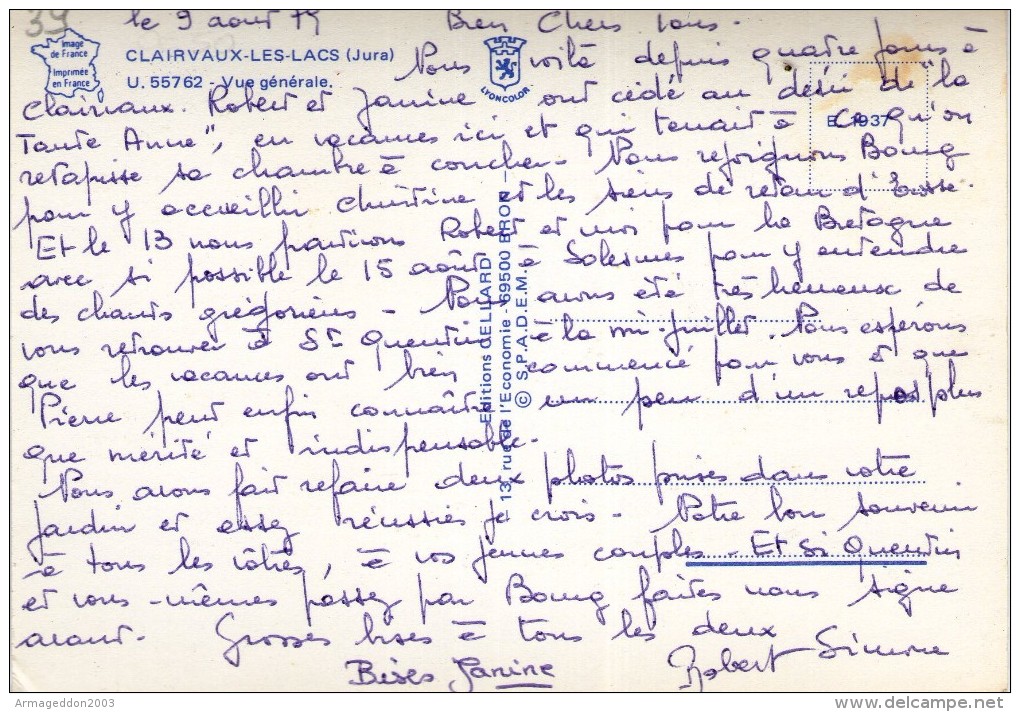 39
le 9 aout 75 Bien Chers tous.
Image de France
Imprimée en France
CLAIRVAUX-LES-LACS (Jura)
U. 55762 - Vue générale.
LYONCOLOR
Nous voilà depuis quatre jours à
Clairvaux. Robert et Janine ont cédé au désir de "la
Tante Anne", en vacances ici et qui tenait à ce qu'on
E. 1937
retapisse sa chambre à coucher. Nous rejoignons Bourg
pour y accueillir Christine et les siens de retour d'Ecosse.
Et le 13 nous partirons Robert et moi pour la Bretagne
avec si possible le 15 août à Solesmes pour y entendre
des chants grégoriens - Nous avons été très heureux de
vous retrouver à St Quentin à la mi-juillet. Nous espérons
que les vacances ont bien commencé pour vous et que
Pierre peut enfin connaître un peu d'un repos plus
que mérité et indispensable.
Nous avons fait refaire deux photos prises dans votre
jardin et assez réussies je crois - Notre bon souvenir
à tous les vôtres, à vos jeunes couples - Et si Quentin
et vous-mêmes passez par Bourg faites nous signe
avant. Grosses bises à tous les deux
Bises Janine Robert Simone
Editions CELLARD
13, rue de l'Economie - 69500 BRON
© S.P.A.D.E.M.
Armageddon2003
www.delcampe.net